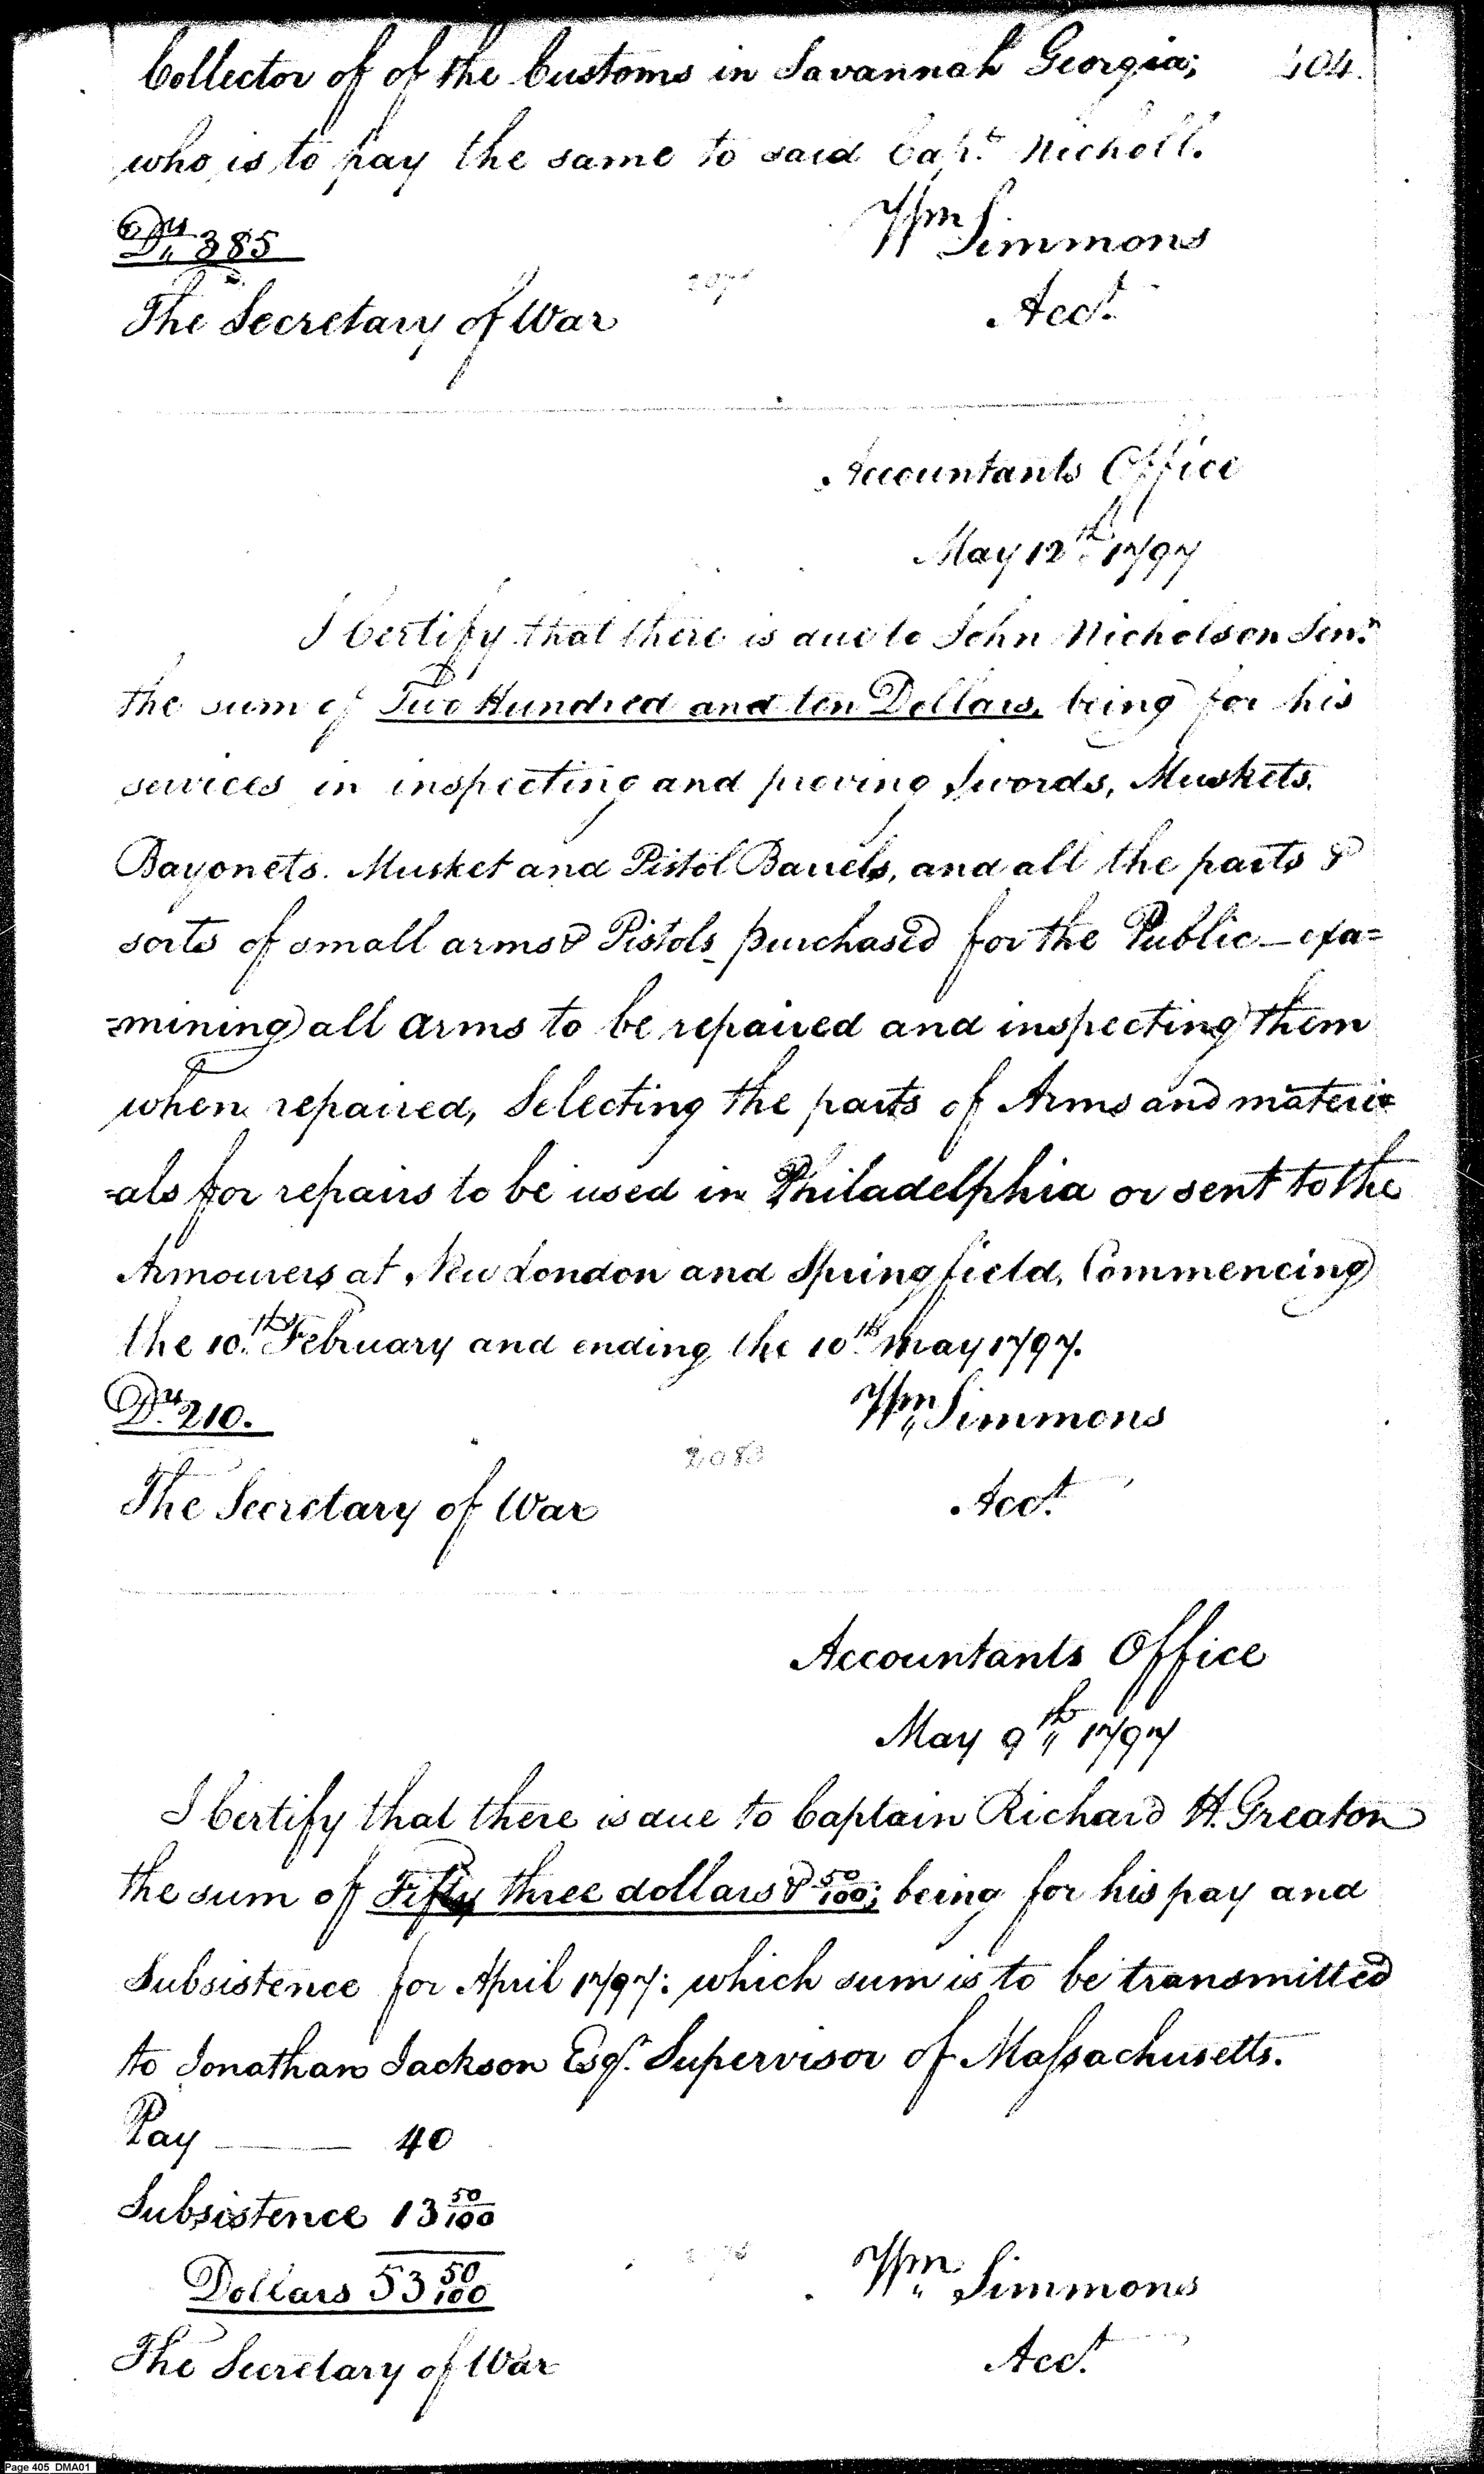 Collector of of the Customs in Savannah Georgia; 404.
who is to pay the same to said Capt. Nicholl.
Drs 385
Wm Simmons
The Secretary of War
Acct.
Accountants Office
May 12th 1797
I Certify that there is due to John Nicholson Senr.
the sum of Two Hundred and ten Dollars, being for his
services in inspecting and proving Swords, Muskets,
Bayonets. Musket and Pistol Barrels, and all the parts &
sorts of small arms & Pistols purchased for the Public — exa=
=mining all arms to be repaired and inspecting them
when repaired, Selecting the parts of Arms and materi=
=als for repairs to be used in Philadelphia or sent to the
Armourers at New London and Springfield, Commencing
the 10th. February and ending the 10th. May 1797.
Drs. 210.
Wm Simmons
2083
The Secretary of War
Acct.
Accountants Office
May 9th 1797
I Certify that there is due to Captain Richard H. Greaton
the sum of Fifty three dollars & 50/100; being for his pay and
Subsistence for April 1797: which sum is to be transmitted
to Jonathan Jackson Esqr. Supervisor of Massachusetts.
Pay —— 40
Subsistence 13 50/100
Dollars 53 50/100
Wm Simmons
The Secretary of War
Acct.
Page 405 DMA01